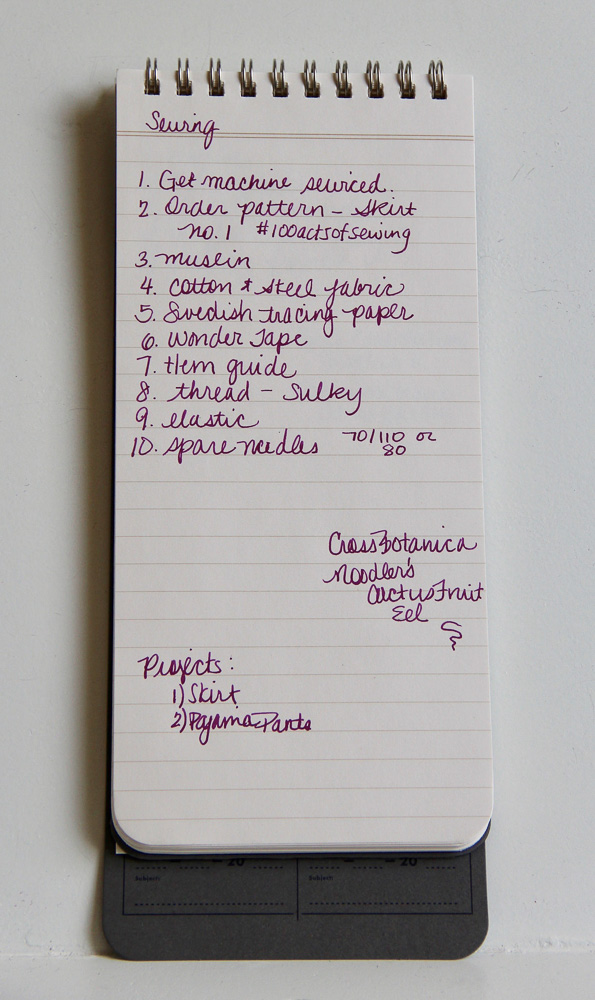 Sewing
1. Get machine serviced.
2. Order pattern - Skirt
no. 1 #100actsofsewing
3. muslin
4. cotton & steel fabric
5. Swedish tracing paper
6. Wonder Tape
7. Hem guide
8. thread - Sulky
9. elastic
10. spare needles 70/110 or
80
Cross Botanica
Noodler's
Cactus Fruit
Eel
Projects:
1) Skirt
2) Pajama Pants
- 20
- 20
Subject:
Subject: